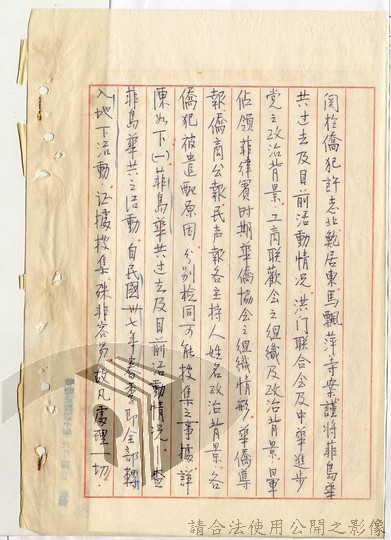 関於僑犯許志北鮑居東馬飄萍等案謹將菲島華
共过去及目前活動情况洪门联合会及中華進步
党之政治背景.工商联歡会之組織及政治背景日軍
佔領菲律賓时期華僑協会之組織情形.華僑導
報僑商公報民声報各主持人姓名政治背景各
僑犯被遣配原因分别檢同可能搜集之事據詳
陳如下(一)菲島華共过去及目前活動情况.查
菲島華共之活動.自民國卅七年春季即全部轉
入地下活動.证據搜集殊非容易故凡處理一切.
請合法使用公開之影像